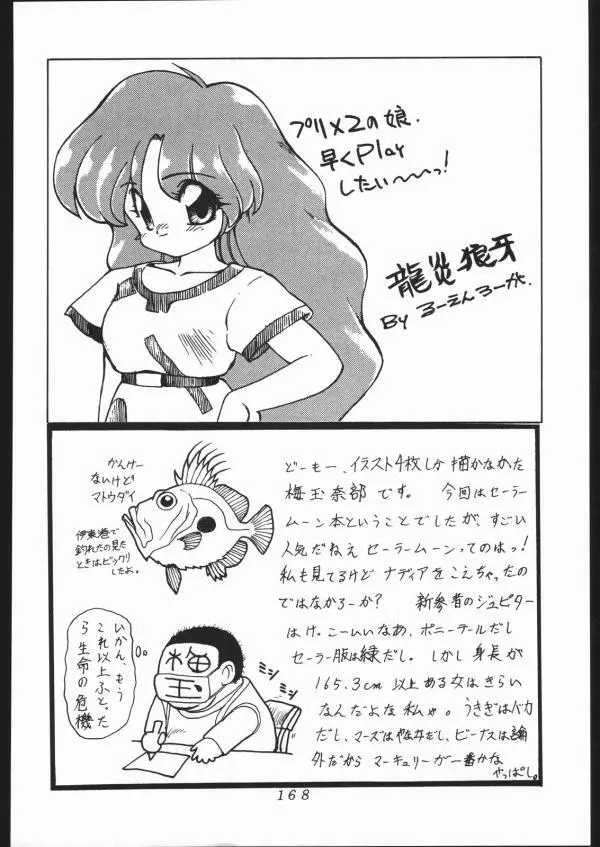 プリメ2の娘.
早くPlay
したい〜〜っ!
龍炎狼牙
By るーえんろーが.
かんけー
ないけど
マトウダイ
伊東港で
釣れたの見た
ときはビックリ
したよ。
どーもー、イラスト4枚しか描かなかた
梅玉奈部です。 今回はセーラー
ムーン本ということでしたが、すごい
人気だねえ セーラームーンってのはっ!
私も見てるけど ナディアをこえちゃったの
ではなかろーか? 新参者のジュピター
はけっこーいいなあ、ポニーテールだし
セーラー服は緑だし。しかし身長が
165.3cm以上ある女はきらい
なんだよな私ゃ。うさぎはバカ
だし、マーズはやな女だし、ビーナスは論
外だから マーキュリーが一番かな
やっぱし。
いかん、もう
これ以上ふとった
ら生命の危機
梅
玉
ミシ
ミシ
168